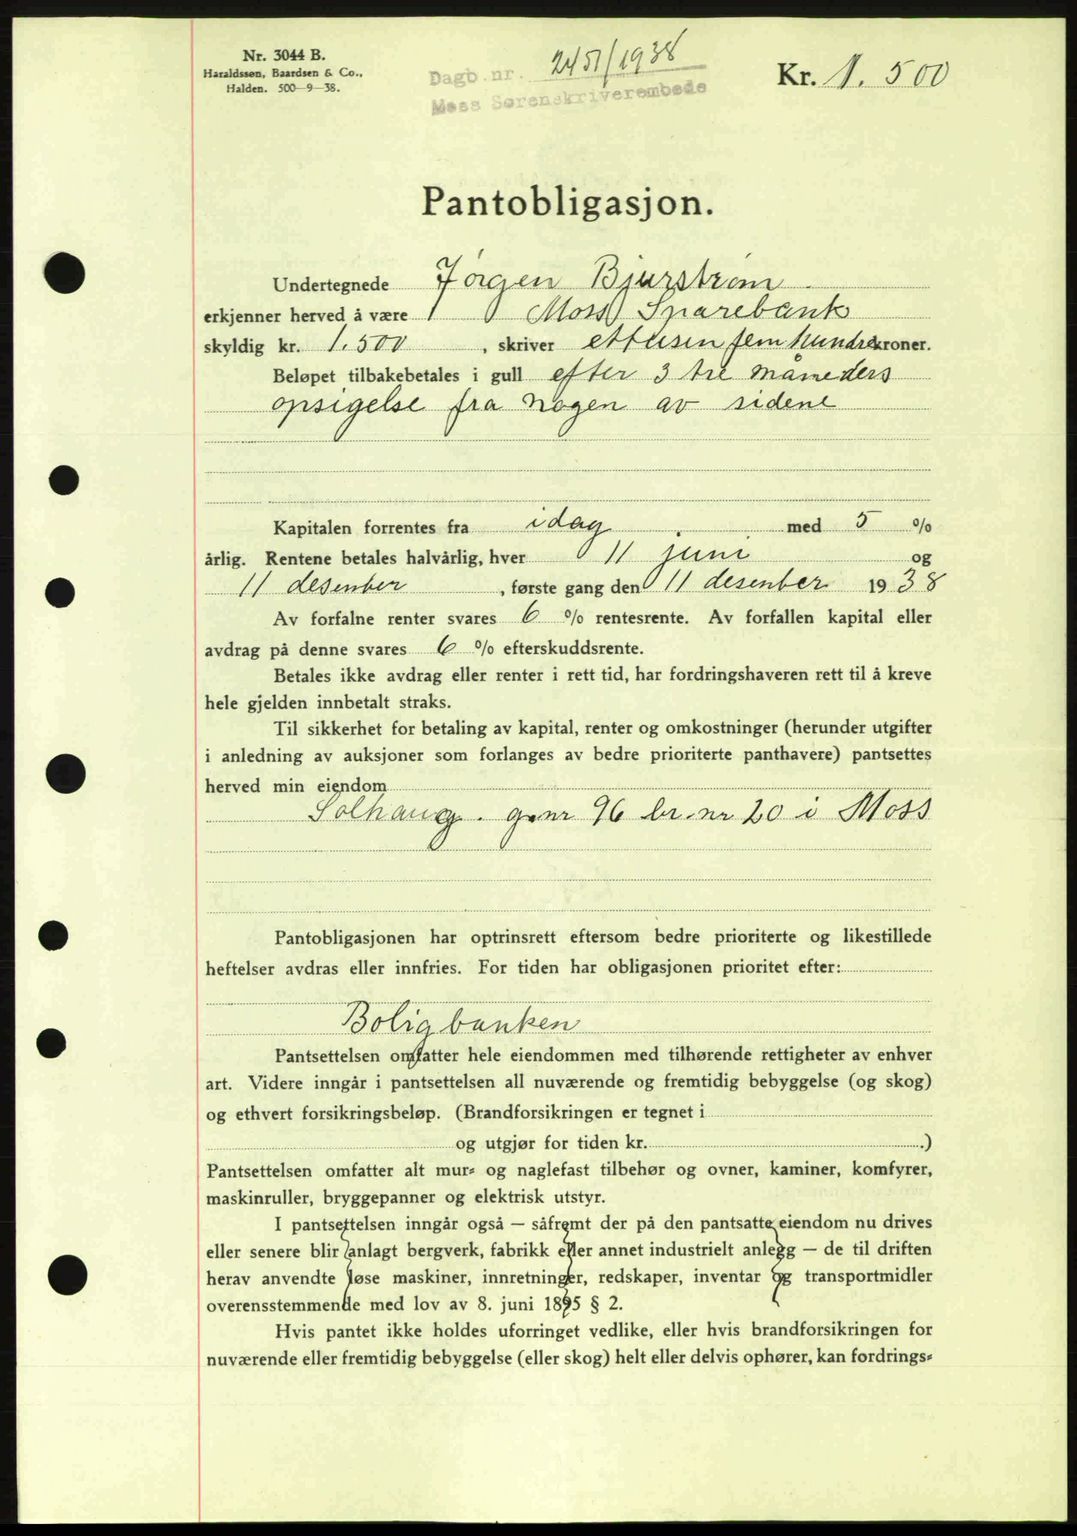 Nr. 3044 B.
Haraldssøn, Baardsen & Co.,
Halden. 500—9—38.
Dagb. nr. 2451/1938
Moss Sorenskriverembede
Kr. 1.500
Pantobligasjon.
Undertegnede Jørgen Bjurstrøm
erkjenner herved å være Moss Sparebank
skyldig kr. 1.500 , skriver ettusen fem hundre kroner.
Beløpet tilbakebetales i gull efter 3 tre måneders
opsigelse fra nogen av sidene
Kapitalen forrentes fra idag med 5 %
årlig. Rentene betales halvårlig, hver 11 juni og
11 desember , første gang den 11 desember 1938
Av forfalne renter svares 6 % rentesrente. Av forfallen kapital eller
avdrag på denne svares 6 % efterskuddsrente.
Betales ikke avdrag eller renter i rett tid, har fordringshaveren rett til å kreve
hele gjelden innbetalt straks.
Til sikkerhet for betaling av kapital, renter og omkostninger (herunder utgifter
i anledning av auksjoner som forlanges av bedre prioriterte panthavere) pantsettes
herved min eiendom
Solhaug. g.nr 96 br.nr 20 i Moss
Pantobligasjonen har optrinsrett eftersom bedre prioriterte og likestillede
heftelser avdras eller innfries. For tiden har obligasjonen prioritet efter:
Boligbanken
Pantsettelsen omfatter hele eiendommen med tilhørende rettigheter av enhver
art. Videre inngår i pantsettelsen all nuværende og fremtidig bebyggelse (og skog)
og ethvert forsikringsbeløp. (Brandforsikringen er tegnet i
og utgjør for tiden kr. .)
Pantsettelsen omfatter alt mur- og naglefast tilbehør og ovner, kaminer, komfyrer,
maskinruller, bryggepanner og elektrisk utstyr.
I pantsettelsen inngår også — såfremt der på den pantsatte eiendom nu drives
eller senere blir anlagt bergverk, fabrikk eller annet industrielt anlegg — de til driften
herav anvendte løse maskiner, innretninger, redskaper, inventar og transportmidler
overensstemmende med lov av 8. juni 1895 § 2.
Hvis pantet ikke holdes uforringet vedlike, eller hvis brandforsikringen for
nuværende eller fremtidig bebyggelse (eller skog) helt eller delvis ophører, kan fordrings-